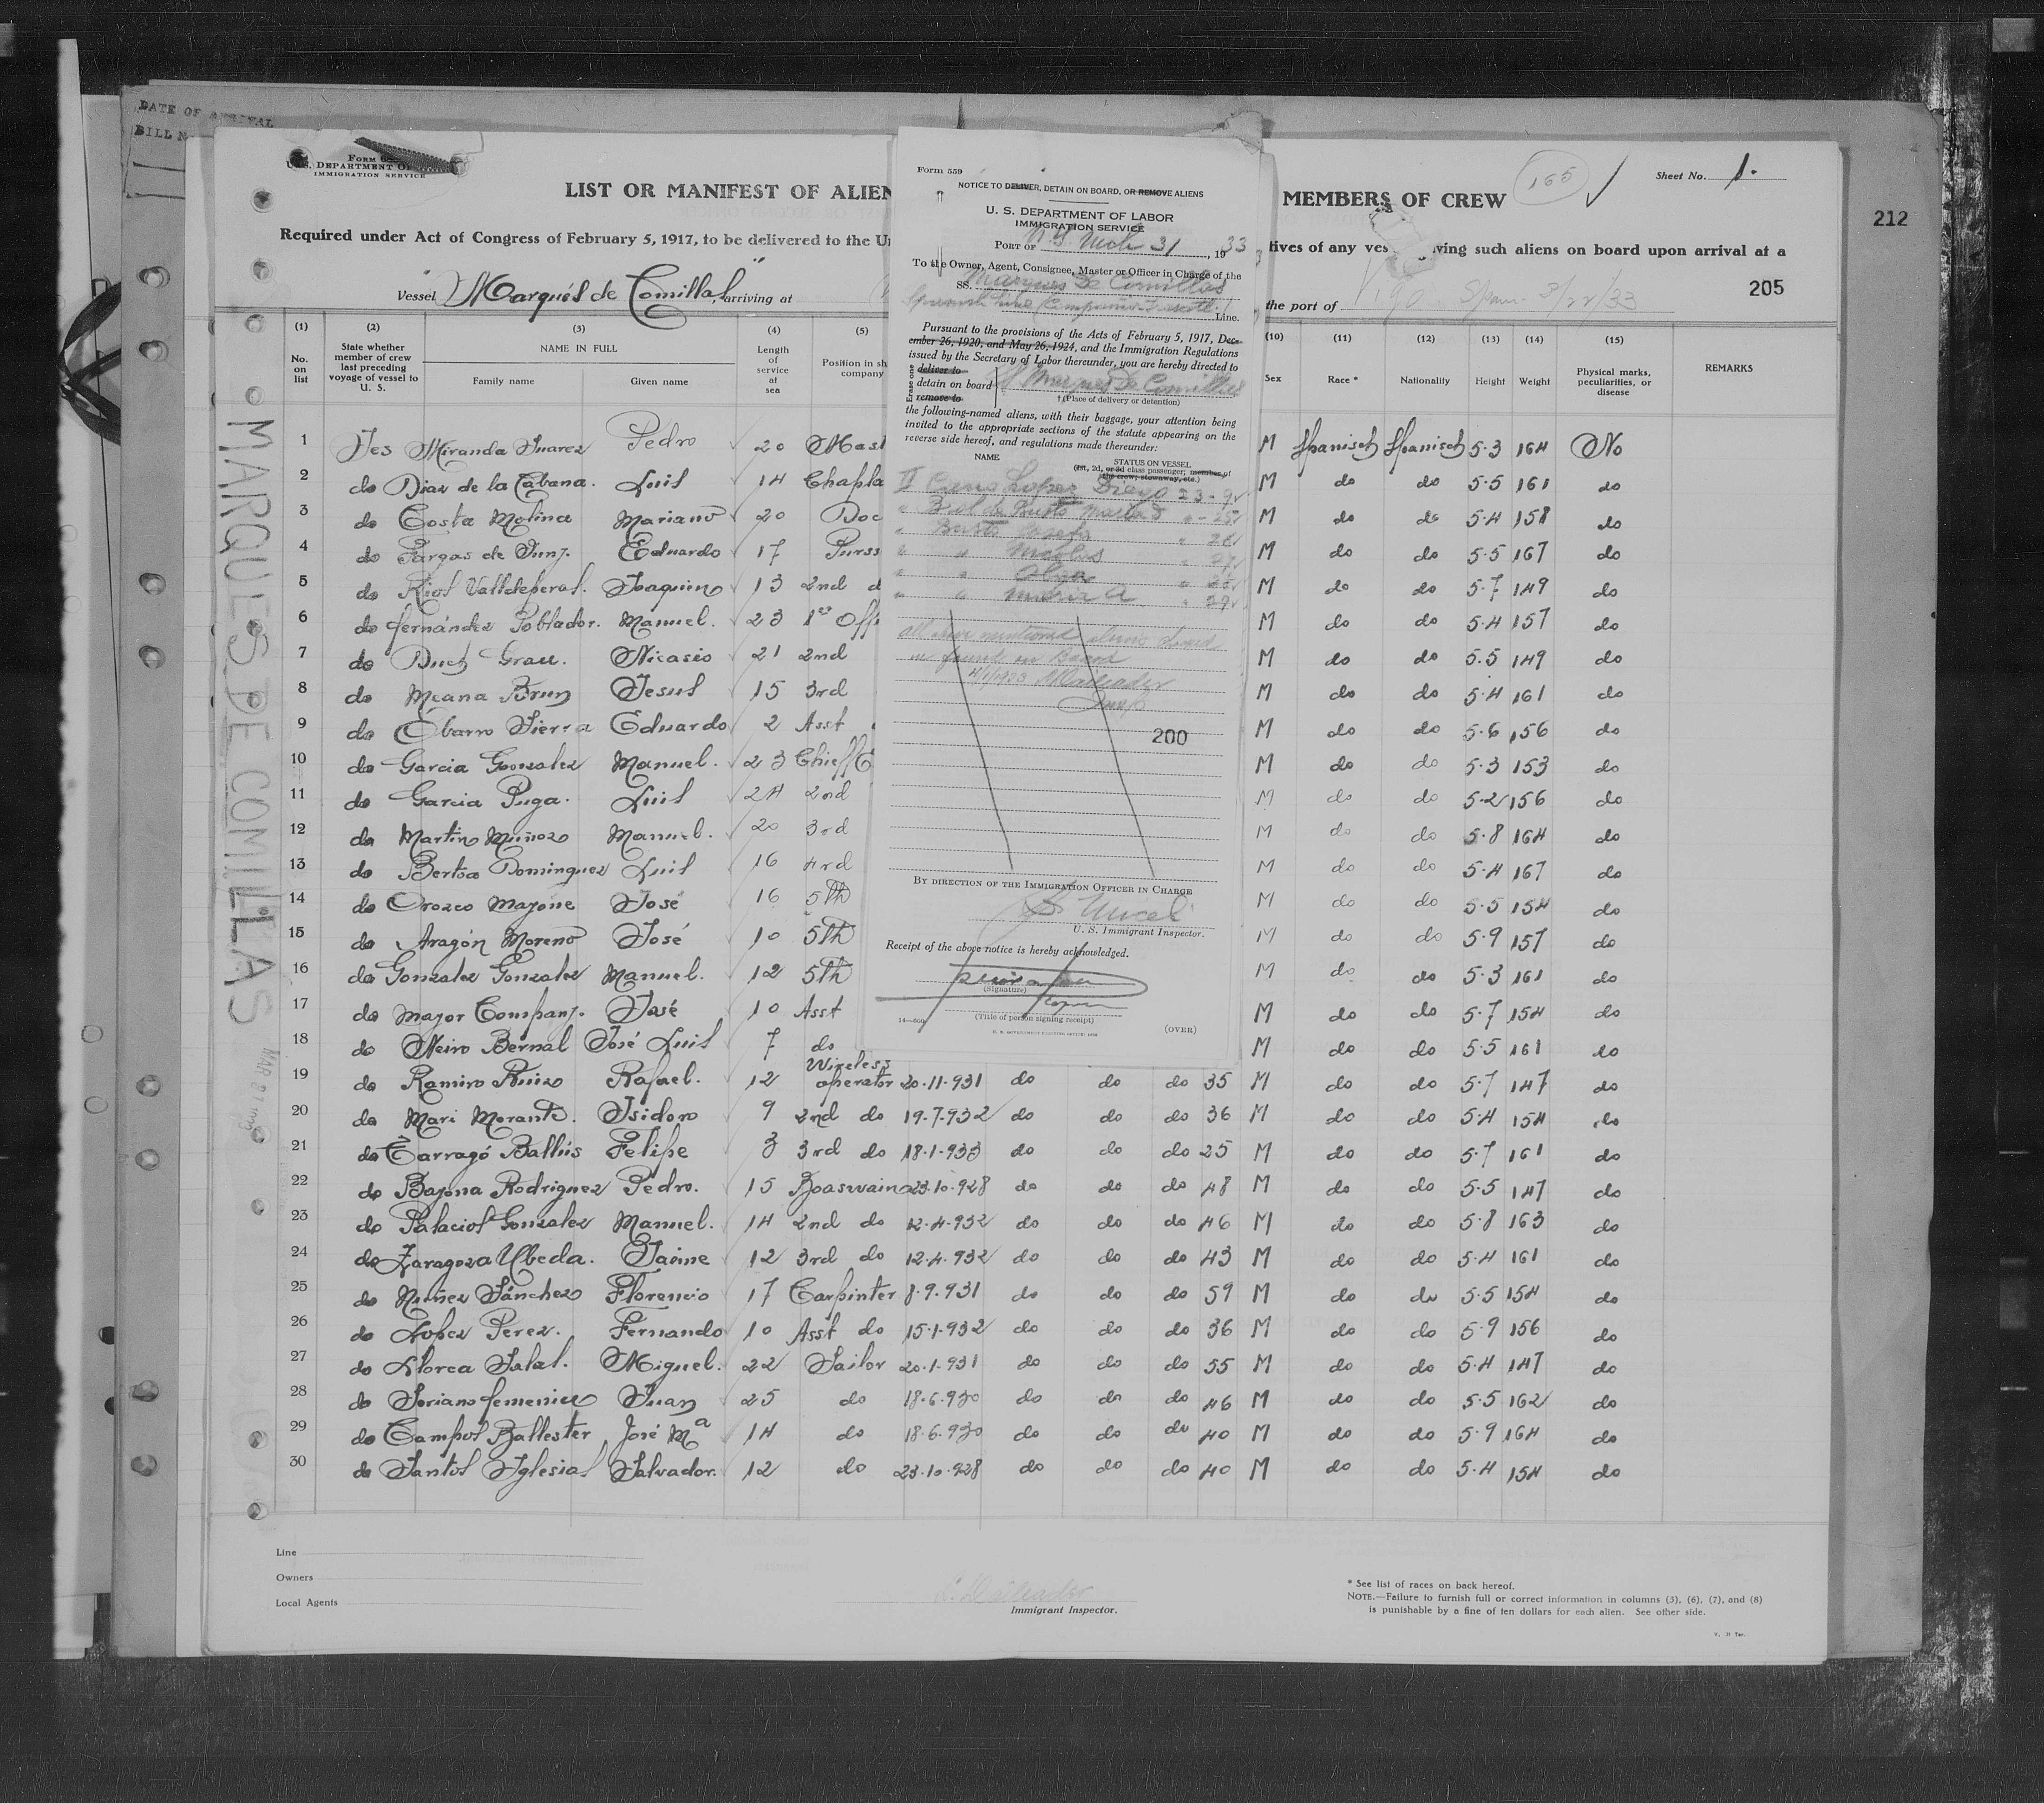 DATE OF ARRIVAL
BILL N
MARQUES DE COMILLAS
212
U. S. DEPARTMENT OF
IMMIGRATION SERVICE
Sheet No. 1.
165
LIST OR MANIFEST OF ALIEN
MEMBERS OF CREW
Required under Act of Congress of February 5, 1917, to be delivered to the U
tives of any ves ving such aliens on board upon arrival at a
205
Vessel "Marqués de Comillas", arriving at
the port of
(1) (2) (3) (4) (5) (10) (11) (12) (13) (14) (15)
No. on list
State whether member of crew last preceding voyage of vessel to U. S.
NAME IN FULL
Family name Given name
Length of service at sea
Position in sh company
Sex Race * Nationality Height Weight
Physical marks, peculiarities, or disease
REMARKS
1 Yes Miranda Suarez Pedro 20 Mast M Spanisch Spanisch 5.3 164 No
2 do Diaz de la Cabana. Luis 14 Chapla M do do 5.5 161 do
3 do Costa Molina Mariano 20 Doc M do do 5.4 158 do
4 do Eduardo 17 Purss M do do 5.5 167 do
5 do Joaquin 13 2nd d M do do 5.7 149 do
6 do Fernández Poblador. Manuel. 23 1er Offi M do do 5.4 157 do
7 do Duch Grau. Nicasio 21 2nd M do do 5.5 149 do
8 do Meana Brun Jesus 15 3rd M do do 5.4 161 do
9 do Sierra Eduardo 2 Asst M do do 5.6 156 do
10 do Garcia Gonzalez Manuel. 23 Chieff E M do do 5.3 153 do
11 do Garcia Puga. Luis 24 2nd M do do 5.2 156 do
12 do Martin Muñoz Manuel. 20 3rd M do do 5.8 164 do
13 do Dominguez Luis 16 4rd M do do 5.4 167 do
14 do Orozco José 16 5th M do do 5.5 154 do
15 do Aragón Moreno José 10 5th M do do 5.9 157 do
16 do Gonzalez Gonzalez Manuel. 12 5th M do do 5.3 161 do
17 do Mayor Company. José 10 Asst M do do 5.7 154 do
18 do Neiro Bernal José Luis 7 do M do do 5.5 161 do
19 do Ramiro Ruizo Rafael. 12 Wireless operator 20.11.931 do do do 35 M do do 5.7 147 do
20 do Mari Morante. Isidoro 9 2nd do 19.7.932 do do do 36 M do do 5.4 154 do
21 do Tarragó Ballús Felipe 3 3rd do 18.1.933 do do do 25 M do do 5.7 161 do
22 do Bayona Rodriguez Pedro. 15 Boaswain 23.10.928 do do do 48 M do do 5.5 147 do
23 do Palacios Gonzalez Manuel. 14 2nd do 12.4.932 do do do 46 M do do 5.8 163 do
24 do Zaragoza Ubeda. Jaime 12 3rd do 12.4.932 do do do 43 M do do 5.4 161 do
25 do Nuñez Sánchez Florencio 17 Carpinter 8.9.931 do do do 59 M do do 5.5 154 do
26 do Lopez Perez. Fernando 10 Asst do 15.1.932 do do do 36 M do do 5.9 156 do
27 do Llorca Salas. Miguel. 22 Sailor 20.1.931 do do do 55 M do do 5.4 147 do
28 do Soriano Femenia Juan 25 do 18.6.930 do do do 46 M do do 5.5 162 do
29 do Campos Ballester José Mª 14 do 18.6.930 do do do 40 M do do 5.9 164 do
30 do Santos Iglesias Salvador. 12 do 23.10.928 do do do 40 M do do 5.4 154 do
Line
Owners
Local Agents
Immigrant Inspector.
* See list of races on back hereof.
NOTE.—Failure to furnish full or correct information in columns (3), (6), (7), and (8)
is punishable by a fine of ten dollars for each alien. See other side.
Form 559
NOTICE TO DELIVER, DETAIN ON BOARD, OR REMOVE ALIENS
U. S. DEPARTMENT OF LABOR
IMMIGRATION SERVICE
PORT OF N.Y. Mch 31, 1933
To the Owner, Agent, Consignee, Master or Officer in Charge of the
SS. Marques De Comillas
Line.
Pursuant to the provisions of the Acts of February 5, 1917, Dec-
ember 26, 1920, and May 26, 1924, and the Immigration Regulations
issued by the Secretary of Labor thereunder, you are hereby directed to
Erase one
deliver to
detain on board
remove to
Marques De Comillas
† (Place of delivery or detention)
the following-named aliens, with their baggage, your attention being
invited to the appropriate sections of the statute appearing on the
reverse side hereof, and regulations made thereunder:
NAME
STATUS ON VESSEL
(1st, 2d, or 3d class passenger; member of
the crew; stowaway, etc.)
Lopez Diego 23-9
Busto Josefa
" Nicolas
" Olga
" Maria A
all above mentioned aliens
found on Board
200
BY DIRECTION OF THE IMMIGRATION OFFICER IN CHARGE
U. S. Immigrant Inspector.
Receipt of the above notice is hereby acknowledged.
(Signature)
(Title of person signing receipt)
(OVER)